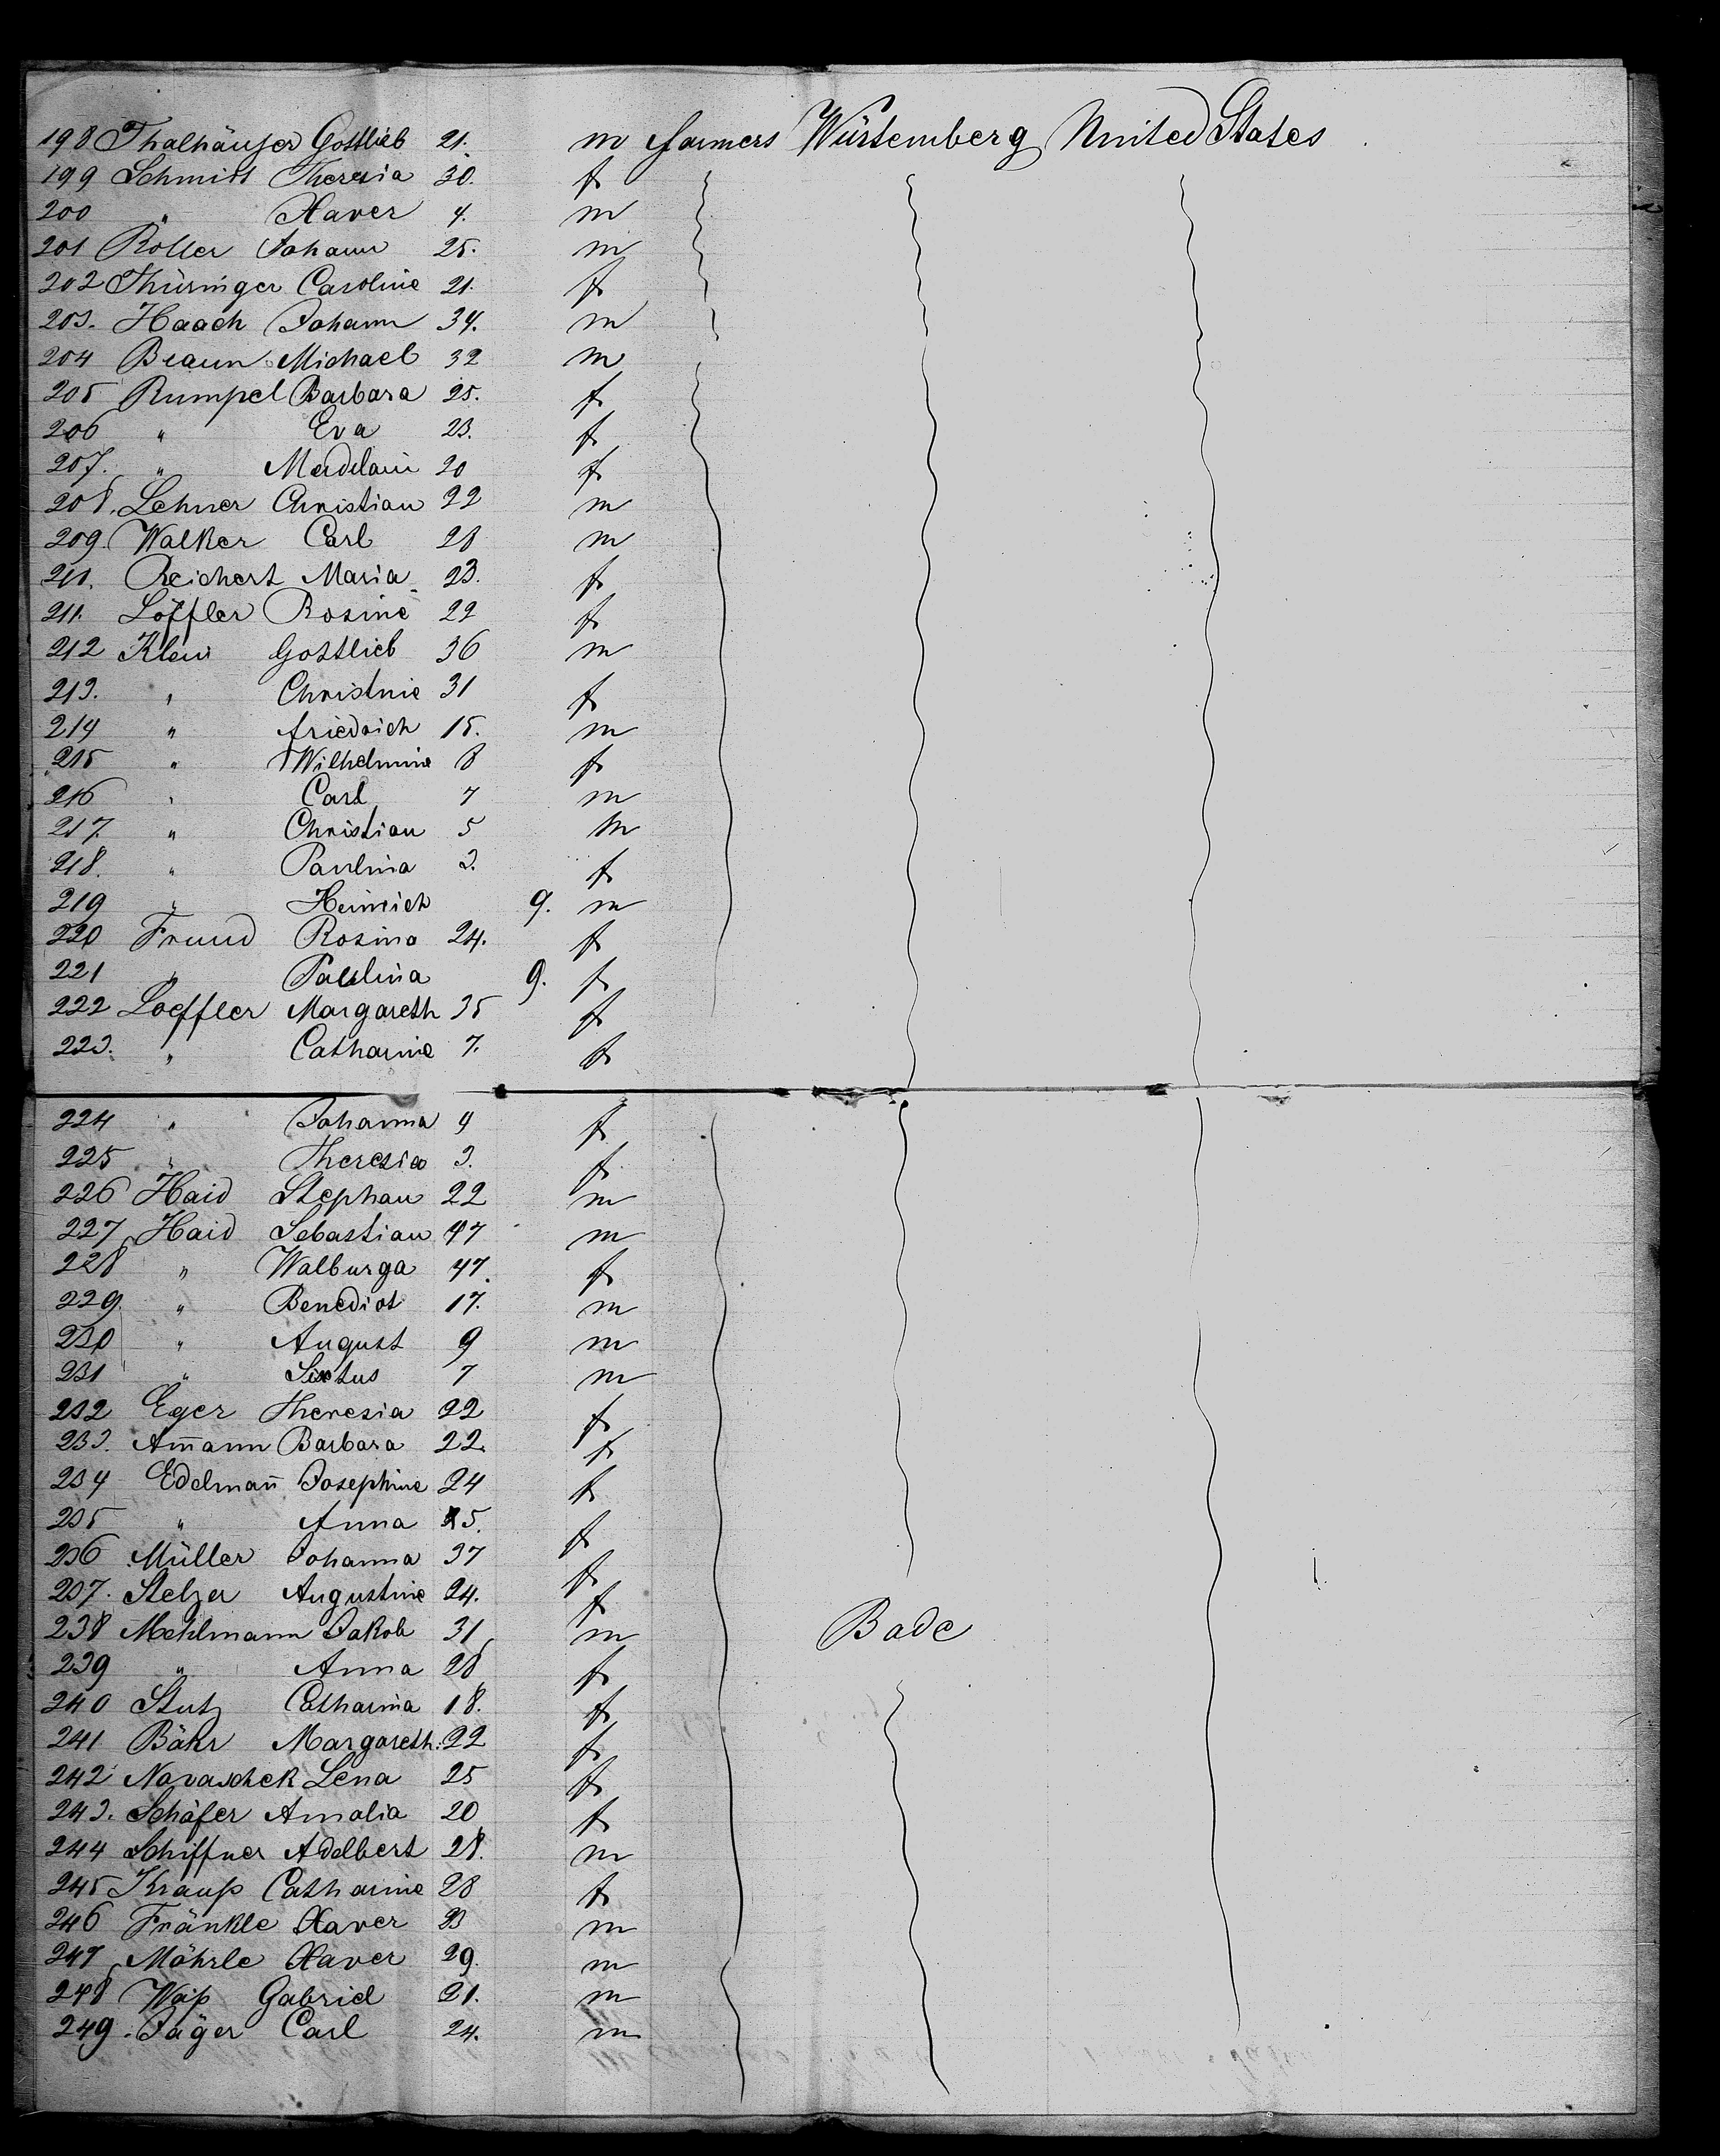 198 Thalhäuser Gottlieb 21. m farmers Würtemberg United States
199 Schmidt Theresia 30. f
200 " Xaver 4. m
201 Roller Johann 25. m
202 Thüringer Caroline 21. f
203. Haach Johann 34. m
204 Braun Michael 32 m
205 Rumpel Barbara 25. f
206 " Eva 23. f
207. " Madelain 20 f
208. Lehner Christian 22 m
209. Walker Carl 28 m
211. Reichert Maria 23. f
211. Löffler Rosine 22 f
212 Klein Gottlieb 36 m
213. " Christine 31 f
214 " friedrich 15. m
215 " Wilhelmine 8 f
216 " Carl 7 m
217. " Christian 5 m
218. " Paulina 3. f
219 " Heinrich 9. m
220 Freund Rosina 24. f
221 " Paulina 9. f
222 Loeffler Margareth 35 f
223. " Catharine 7. f
224 " Johanna 4 f
225 " Theresia 3. f
226 Haid Stephan 22 m
227 Haid Sebastian 47 m
228 " Walburga 47. f
229. " Benedict 17. m
230 " August 9 m
231 " Sixtus 7 m
232 Eger Theresia 22 f
233. Am̄ann Barbara 22. f
234 Edelman̄ Josephine 24 f
235 " Anna 5. f
236 Müller Johanna 37 f
237. Stelzer Augustine 24. f
238 Mehlmann Jakob 31 m Bade
239 " Anna 28 f
240 Stutz Catharina 18. f
241 Bähr Margareth. 22 f
242 Navaschek Lena 25 f
243. Schäfer Amalia 20 f
244 Schiffner Adelbert 28. m
245 Krauß Catharine 28 f
246 Fränkle Xaver 23 m
247 Möhrle Xaver 29. m
248 Waiß Gabriel 21. m
249. Jäger Carl 24. m